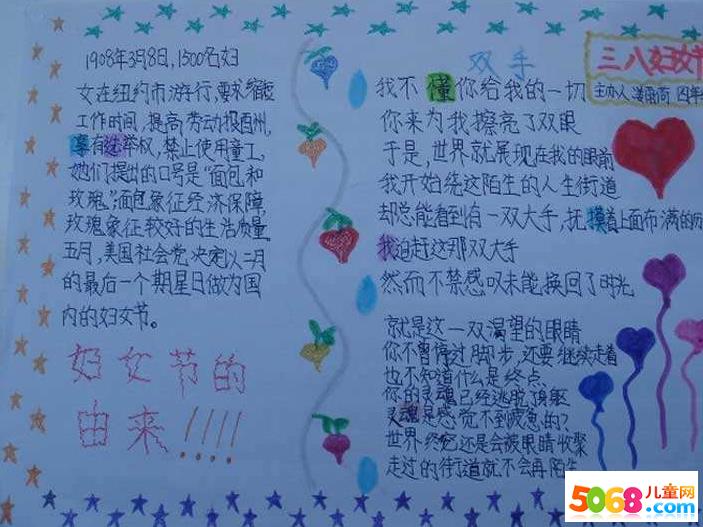 1908年3月8日,1500名妇
女在纽约市游行,要求缩短
工作时间,提高劳动报酬,
享有选举权,禁止使用童工。
她们提出的口号是“面包和
玫瑰”,面包象征经济保障,
玫瑰象征较好的生活质量
五月,美国社会党决定以二月
的最后一个期星日做为国
内的妇女节。
妇女节的
由来!!!!
双手
我不懂你给我的一切
你来为我擦亮了双眼
于是,世界就展现在我的眼前
我开始绕这陌生的人生街道
却总能看到有一双大手,抚摸着上面布满的历
我追赶这那双大手
然而不禁感叹未能换回了时光
就是这一双渴望的眼睛
你不曾停过脚步,还要继续走着
也不知道什么是终点
你的灵魂已经逃脱了身躯
灵魂是感觉不到疲惫的?
世界终究还是会被眼睛收聚
走过的街道就不会再陌生
三八妇女节
主办人 四年
5068儿童网
www.5068.com